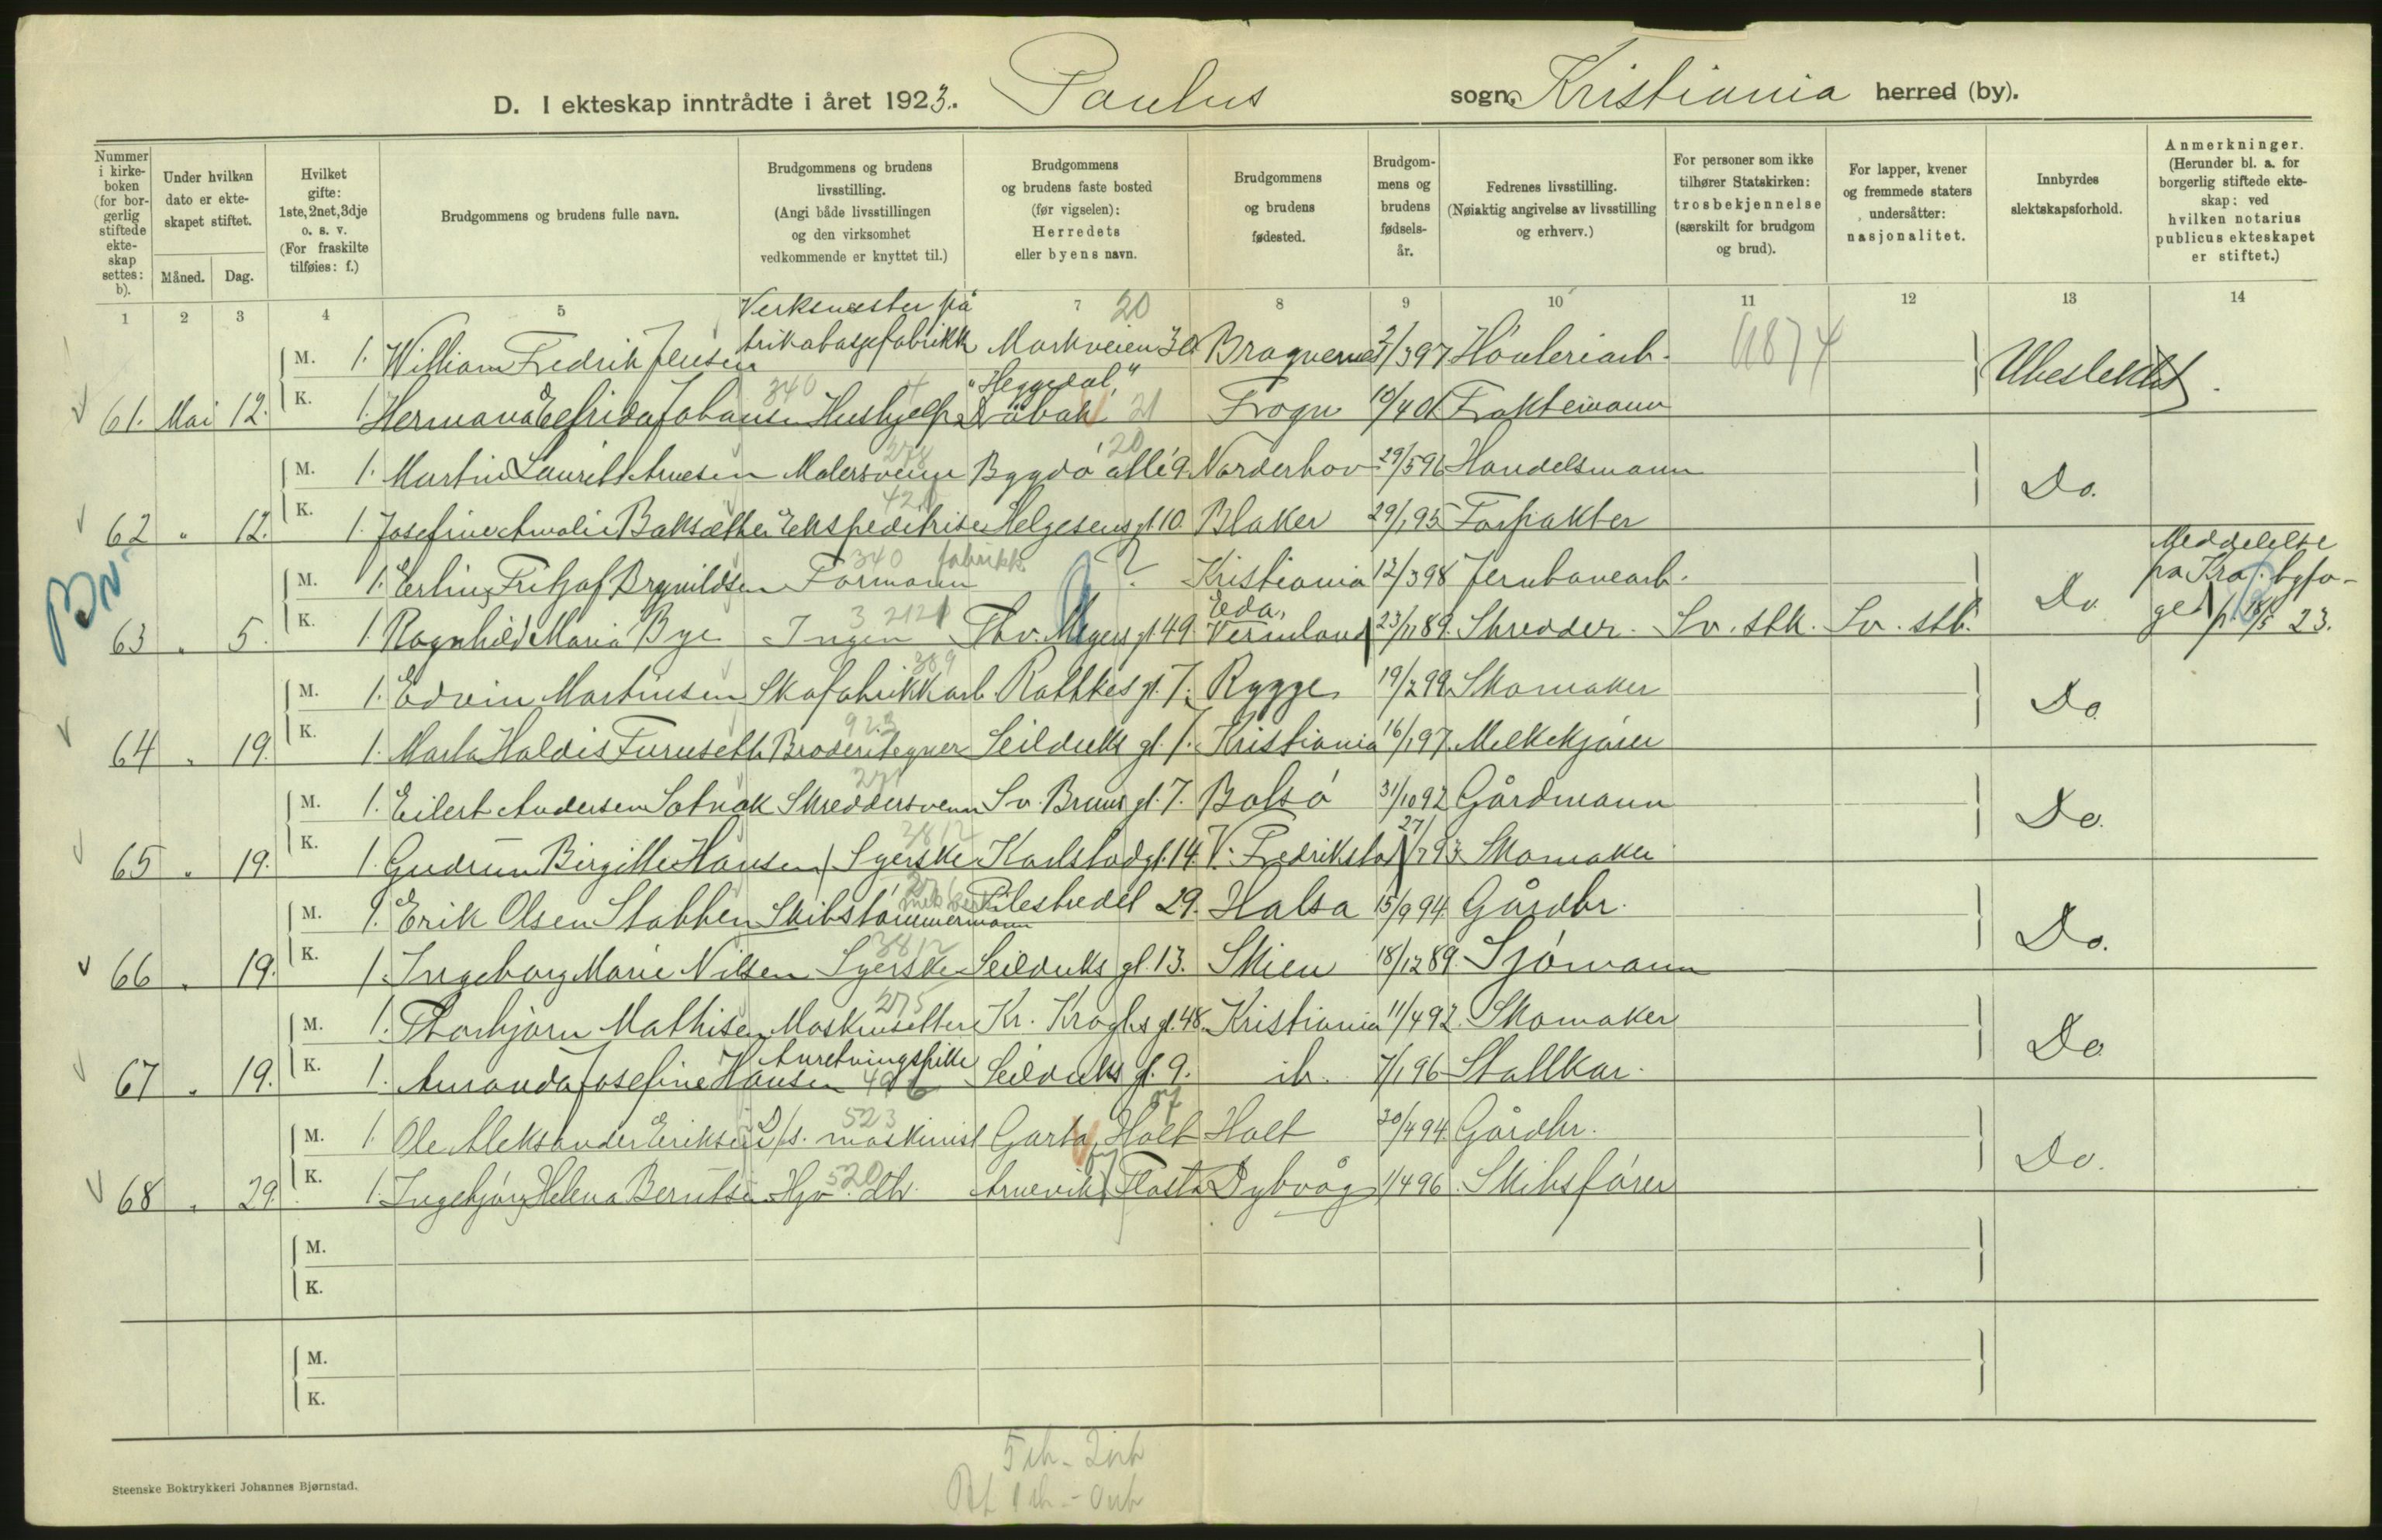 D. I ekteskap inntrådte i året 1923. Paulus sogn, Kristiania herred (by).
Nummer i kirke-boken (for bor-gerlig stiftede ekte-skap settes: b).
Under hvilken dato er ekte-skapet stiftet.
Måned. Dag.
Hvilket gifte: 1ste, 2net, 3dje o. s. v. (For fraskilte tilføies: f.)
Brudgommens og brudens fulle navn.
Brudgommens og brudens livsstilling. (Angi både livsstillingen og den virksomhet vedkommende er knyttet til.)
Brudgommens og brudens faste bosted (før vigselen): Herredets eller byens navn.
Brudgommens og brudens fødested.
Brudgom-mens og brudens fødsels-år.
Fedrenes livsstilling. (Nøiaktig angivelse av livsstilling og erhverv.)
For personer som ikke tilhører Statskirken: trosbekjennelse (særskilt for brudgom og brud).
For lapper, kvener og fremmede staters undersåtter: nasjonalitet.
Innbyrdes slektskapsforhold.
Anmerkninger. (Herunder bl. a. for borgerlig stiftede ekte-skap: ved hvilken notarius publicus ekteskapet er stiftet.)
1 2 3 4 5 7 8 9 10 11 12 13 14
Verksmester på 20
M. 1. William Fredrik Jensen trikotasjefabrikk Markveien Bragernes 3/3 97 Høvleriarb. 11874 Ubeslektet.
340 "Heggedal"
61. Mai 12. K. 1. Hermana Elfrida Johansen Hushjelp Drøbak 21 Frogn 10/4 01 Fraktemann
274 20
M. 1. Martin Laurits Arnesen Malersvenn Bygdø allé 9. Norderhov 29/5 96 Handelsmann Do.
421
62 " 12. K. 1. Josefine Amalie Baksæther Ekspeditrise Helgesens gt. 10. Blaker 29/1 95 Forpakter
340 fabrikk Meddelelse
M. 1. Erling Fritjof Brynildsen Formann ? Kristiania 12/3 98 Jernbanearb. Do. fra Kra. byfo-
Bv. 3 2121 Eda,
63 " 5. K. 1. Ragnhild Maria Bye Ingen Thv. Meyers gt. 49 Vermland 23/11 89. Skredder. Sv. stk. Sv. stb. ged 18/5 23.
389
M. 1. Edvin Martinsen Skofabrikkarb. Rathkes gt. 7. Rygge 19/2 99 Skomaker Do.
923
64 " 19. K. 1. Marta Haldis Furuseth Broderitegner Seilduks gt. 1. Kristiania 16/1 97 Melkekjører
271
M. 1. Eilert Andersen Solnøk Skreddersvenn Sv. Bruns gt. 7. Bolsø 31/10 92 Gårdmann Do.
3812
65 " 19. K. 1. Gudrun Birgitte Hansen Syerske Karlstadgt. 14. V. Fredrikstad 27/7 93 Skomaker
M. 1. Erik Olsen Stabben Skibstømmermann Pilestredet 29. Halsa 15/9 94 Gårdbr. Do.
3812
66 " 19. K. 1. Ingeborg Marie Nilsen Syerske Seilduks gt. 13. Skien 18/12 89. Sjømann
275
M. 1. Thorbjørn Mathisen Maskinsetter Kr. Kroghs gt. 48. Kristiania 11/4 92. Skomaker Do.
Anretningspike
67 " 19. K. 1. Amanda Josefine Hansen Seilduks gt. 9. ib. 7/1 96 Stallkar.
523 57
M. 1. Ole Aleksander Eriksen D/s. maskinist Garta, Holt Holt 30/4 94 Gårdbr. Do.
520
68 " 29. K. 1. Ingebjørg Helena Berntsen Hjv. dtr. Arnevik, Flosta Dybvåg 1/4 96. Skibsfører
M.
K.
M.
K.
Steenske Boktrykkeri Johannes Bjørnstad.